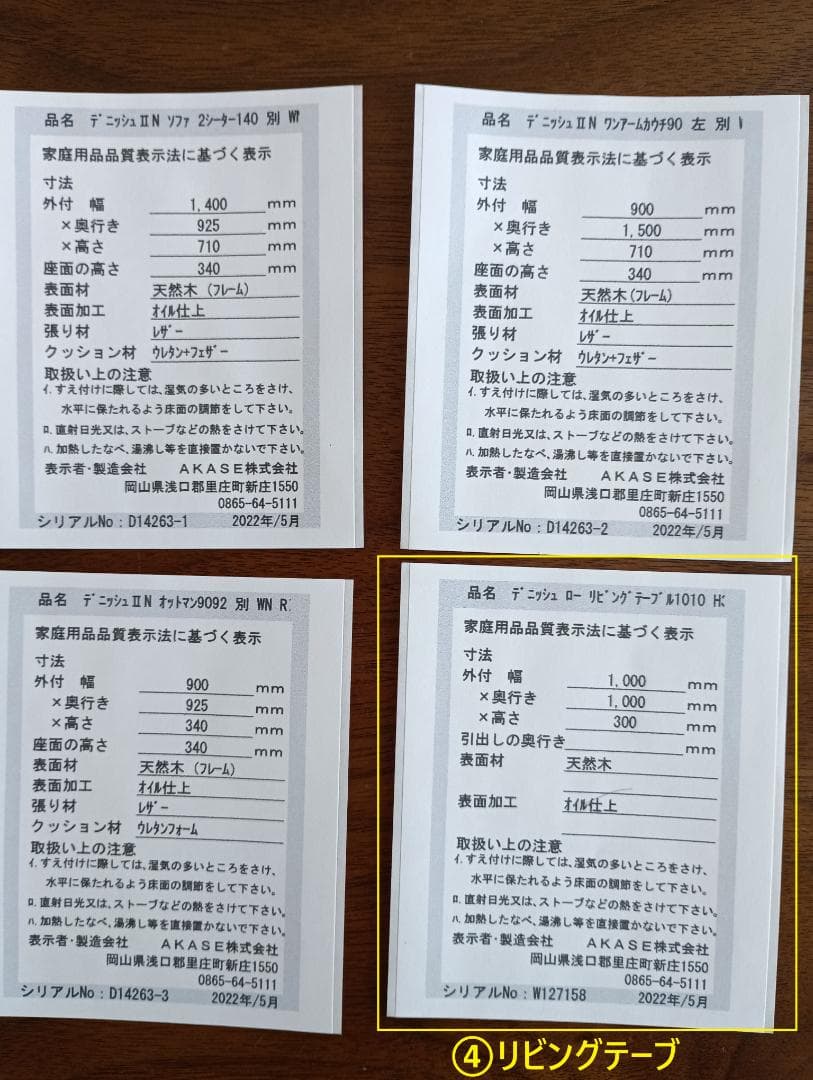 品名 デニッシュⅡN ソファ 2シーター140 別 W
家庭用品品質表示法に基づく表示
寸法
外付 幅 1,400 mm
×奥行き 925 mm
×高さ 710 mm
座面の高さ 340 mm
表面材 天然木 (フレーム)
表面加工 オイル仕上
張り材 レザー
クッション材 ウレタン+フェザー
取扱い上の注意
イ.すえ付けに際しては、湿気の多いところをさけ、
水平に保たれるよう床面の調節をして下さい。
ロ.直射日光又は、ストーブなどの熱をさけて下さい。
ハ.加熱したなべ、湯沸し等を直接置かないで下さい。
表示者・製造会社 AKASE株式会社
岡山県浅口郡里庄町新庄1550
0865-64-5111
シリアルNo:D14263-1 2022年/5月
品名 デニッシュⅡN ワンアームカウチ90 左 別
家庭用品品質表示法に基づく表示
寸法
外付 幅 900 mm
×奥行き 1,500 mm
×高さ 710 mm
座面の高さ 340 mm
表面材 天然木(フレーム)
表面加工 オイル仕上
張り材 レザー
クッション材 ウレタン+フェザー
取扱い上の注意
イ.すえ付けに際しては、湿気の多いところをさけ、
水平に保たれるよう床面の調節をして下さい。
ロ.直射日光又は、ストーブなどの熱をさけて下さい。
ハ.加熱したなべ、湯沸し等を直接置かないで下さい。
表示者・製造会社 AKASE株式会社
岡山県浅口郡里庄町新庄1550
0865-64-5111
シリアルNo:D14263-2 2022年/5月
品名 デニッシュⅡN オットマン9092 別 WN R
家庭用品品質表示法に基づく表示
寸法
外付 幅 900 mm
×奥行き 925 mm
×高さ 340 mm
座面の高さ 340 mm
表面材 天然木 (フレーム)
表面加工 オイル仕上
張り材 レザー
クッション材 ウレタンフォーム
取扱い上の注意
イ.すえ付けに際しては、湿気の多いところをさけ、
水平に保たれるよう床面の調節をして下さい。
ロ.直射日光又は、ストーブなどの熱をさけて下さい。
ハ.加熱したなべ、湯沸し等を直接置かないで下さい。
表示者・製造会社 AKASE株式会社
岡山県浅口郡里庄町新庄1550
0865-64-5111
シリアルNo:D14263-3 2022年/5月
品名 デニッシュ ロー リビングテーブル1010 H
家庭用品品質表示法に基づく表示
寸法
外付 幅 1,000 mm
×奥行き 1,000 mm
×高さ 300 mm
引出しの奥行き mm
表面材 天然木
表面加工 オイル仕上
取扱い上の注意
イ.すえ付けに際しては、湿気の多いところをさけ、
水平に保たれるよう床面の調節をして下さい。
ロ.直射日光又は、ストーブなどの熱をさけて下さい。
ハ.加熱したなべ、湯沸し等を直接置かないで下さい。
表示者・製造会社 AKASE株式会社
岡山県浅口郡里庄町新庄1550
0865-64-5111
シリアルNo:W127158 2022年/5月
④リビングテーブ